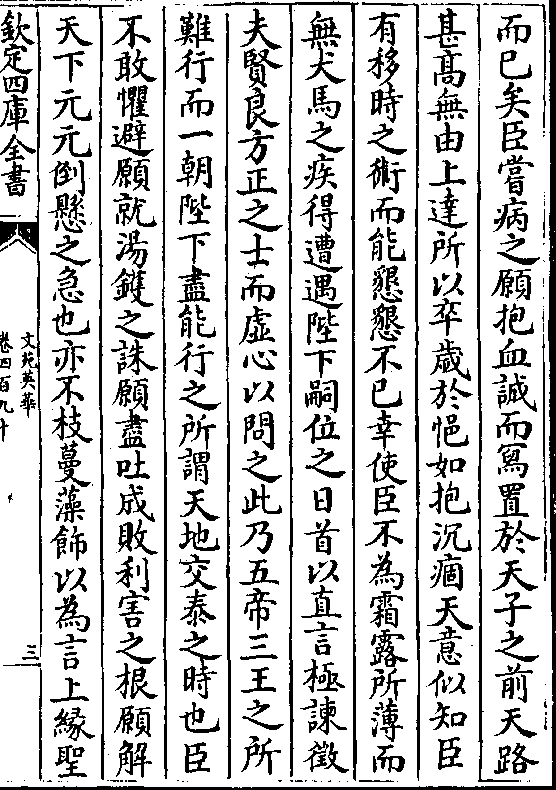 而已矣臣嘗病之願抱血誠而寫置於天子之前天路
甚髙無由上達所以卒歲於悒如抱沉痼天意似知臣
有移時之術而能懇懇不已幸使臣不為霜露所薄而
無犬馬之疾得遭遇陛下嗣位之日首以直言極諫徴
夫賢良方正之士而虛心以問之此乃五帝三王之所
難行而一朝陛下盡能行之所謂天地交泰之時也臣
不敢懼避願就湯鑊之誅願盡吐成敗利害之根願解
天下元元倒懸之急也亦不枝蔓藻飾以為言上緣聖
欽定四庫全書
文苑英華
卷四百九十
三